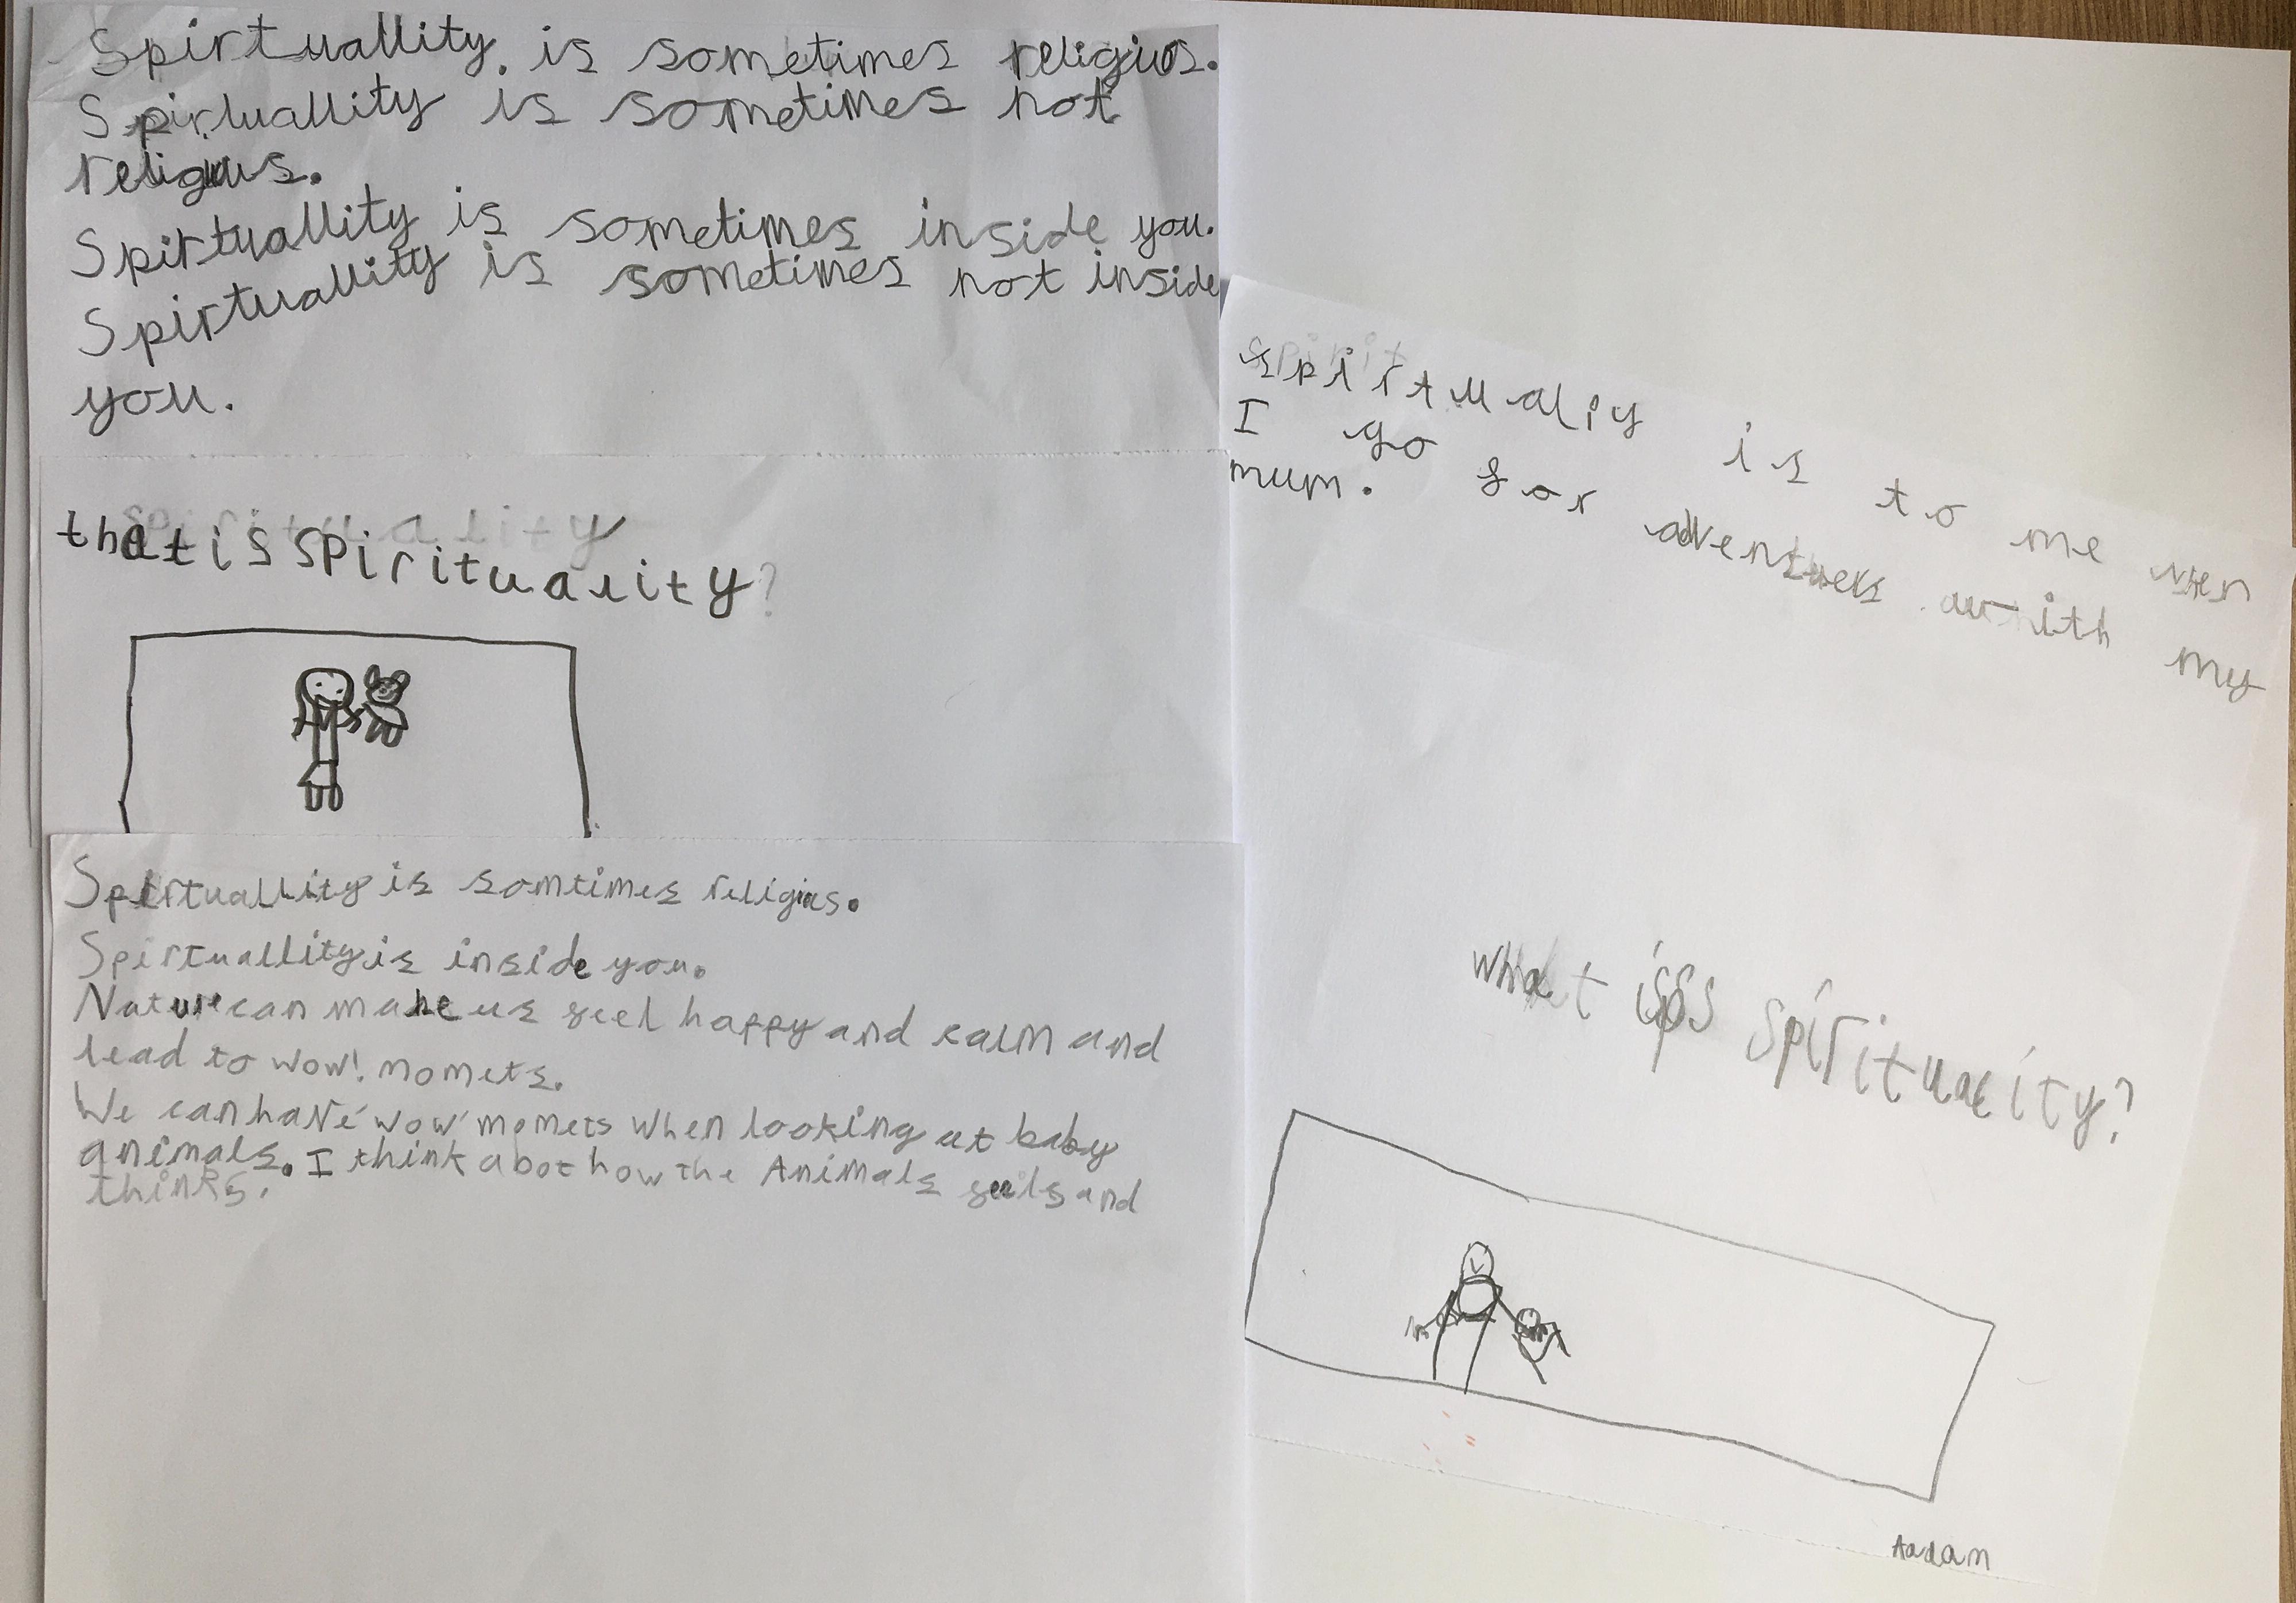 Spirtuallity. is sometimes religius.
Spirtuallity is sometimes not
religius.
Spirtuallity is sometimes inside you.
Spirtuallity is sometimes not inside
you.
that is Spirituality?
Spirtuallity is somtimes religius.
Spirtuallity is inside you.
Nature can make us feel happy and calm and
lead to wow! momets.
We can have 'wow' momets when looking at baby
animals. I think abot how the Animals feels and
thinks.
spirtualiy is to me when
I go for adventuers with my
mum.
what is spirituality?
Aadam